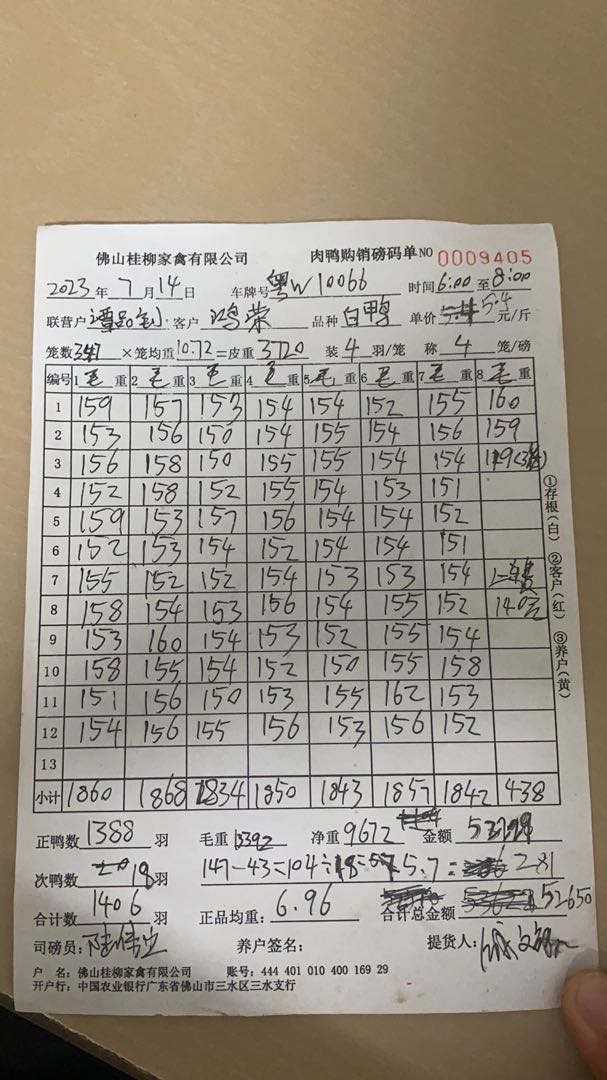 佛山桂柳家禽有限公司 肉鸭购销磅码单 NO 0009405
2023年 7月 14日 车牌号 粤W10066 时间 6:00 至 8:00
联营户 客户 鸿荣 品种 白鸭 单价 5.4 元/斤
笼数 347 ×笼均重 10.72 =皮重 3720 装 4 羽/笼 称 4 笼/磅
编号 1 毛重 2 毛重 3 毛重 4 毛重 5 毛重 6 毛重 7 毛重 8 毛重
1 159 157 153 154 154 152 155 160
2 153 156 150 154 155 154 156 159
3 156 158 150 155 155 154 154 119
4 152 158 152 155 154 153 151
5 159 153 157 156 154 154 152
6 152 153 154 152 154 154 151
7 155 152 152 154 153 153 154
8 158 154 153 156 154 155 152 140
9 153 160 154 153 152 155 154
10 158 155 154 152 150 155 158
11 151 156 150 153 155 162 153
12 154 156 155 156 153 156 152
13
小计 1860 1868 1834 1850 1843 1857 1842 438
正鸭数 1388 羽 毛重 13392 净重 9672 金额
次鸭数 18 羽 147-43=104÷18= 5.7= 281
合计数 1406 羽 正品均重: 6.96 合计总金额 52650
司磅员: 养户签名: 提货人:
户 名: 佛山桂柳家禽有限公司 账号: 444 401 010 400 169 29
开户行: 中国农业银行广东省佛山市三水区三水支行
①存根(白) ②客户(红) ③养户(黄)